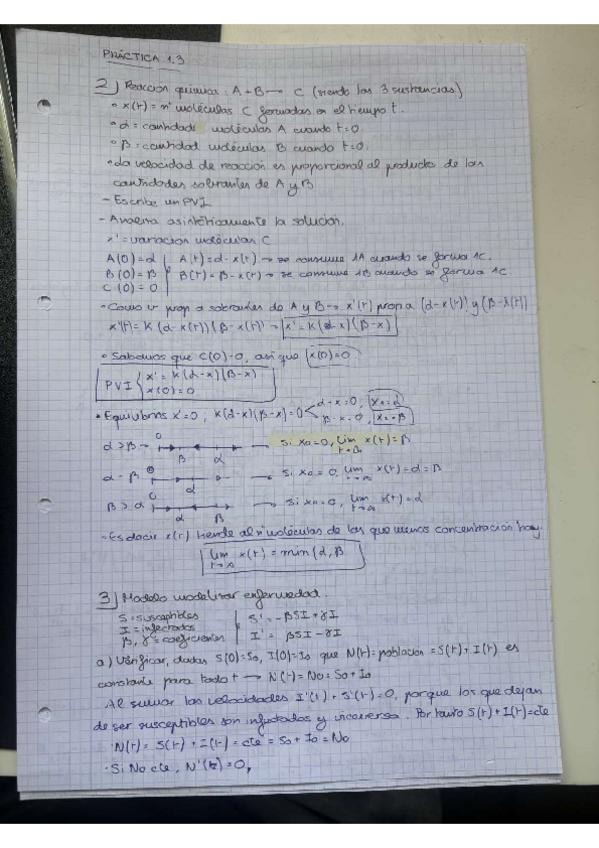 PRÁCTICA 1.3
2) Reacción química: A+B → C (siendo las 3 sustancias)
• x(t) = nº moléculas C formadas en el tiempo t.
• α = cantidad moléculas A cuando t=0.
• β = cantidad moléculas B cuando t=0.
• La velocidad de reacción es proporcional al producto de las
cantidades sobrantes de A y B
- Escribe un PVI
- Analiza asintóticamente la solución.
x' = variación moléculas C
A(0)=α | A(t)=α-x(t) → se consume 1A cuando se forma 1C.
B(0)=β | B(t)=β-x(t) → se consume 1B cuando se forma 1C
C(0)=0
• Como v prop a sobrantes de A y B → x'(t) prop a (α-x(t)) y (β-x(t))
x'(t)=K(α-x(t))(β-x(t)) → x'=K(α-x)(β-x)
• Sabemos que C(0)=0, así que x(0)=0
PVI { x'=K(α-x)(β-x)
x(0)=0
• Equilibrios x'=0, K(α-x)(β-x)=0 < α-x=0, x=α
β-x=0, x=β
α>β → 0 β α → si x0=0, lim t→∞ x(t)=β
α=β 0 → si x0=0, lim t→∞ x(t)=α=β
β>α 0 α β → si x0=0, lim t→∞ x(t)=α
- Es decir x(t) tiende al nº moléculas de las que menos concentración hay.
lim t→∞ x(t) = min(α,β
3) Modelo modelizar enfermedad.
S = susceptibles | S'=-βSI+γI
I = infectados | I'=βSI-γI
β, γ = coeficientes
a) Verificar, dadas S(0)=S0, I(0)=I0 que N(t)=población=S(t)+I(t) es
constante para todo t → N(t)=N0=S0+I0
Al sumar las velocidades I'(t)+S'(t)=0, porque los que dejan
de ser susceptibles son infectados y viceversa. Por tanto S(t)+I(t)=cte
• N(t)=S(t)+I(t)=cte=S0+I0=N0
• Si N0 cte, N'(t)=0,